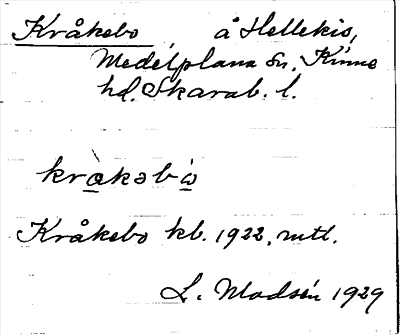 Kråkebo å Hellekis,
Medelplana sn, Kinne
hd. Skarab. l.
kràkəbò
Kråkebo kb. 1922, mtl.
L. Modsén 1929